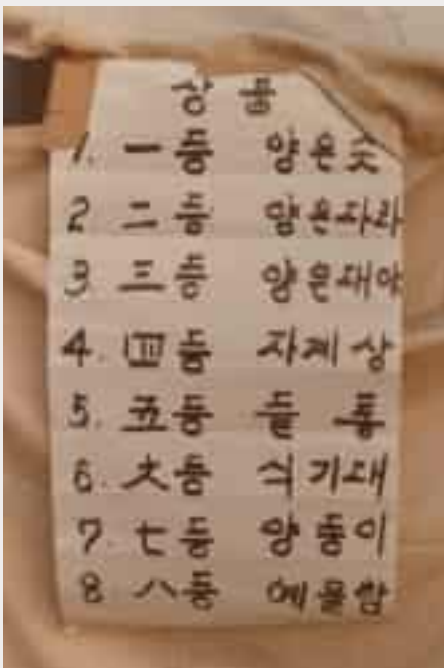 상품
1. 一등 양은솟
2 二등 양은다라
3 三등 양은대야
4. 四등 자게상
5. 五등 들통
6. 六등 식기대
7 七등 양동이
8 八등 예물함